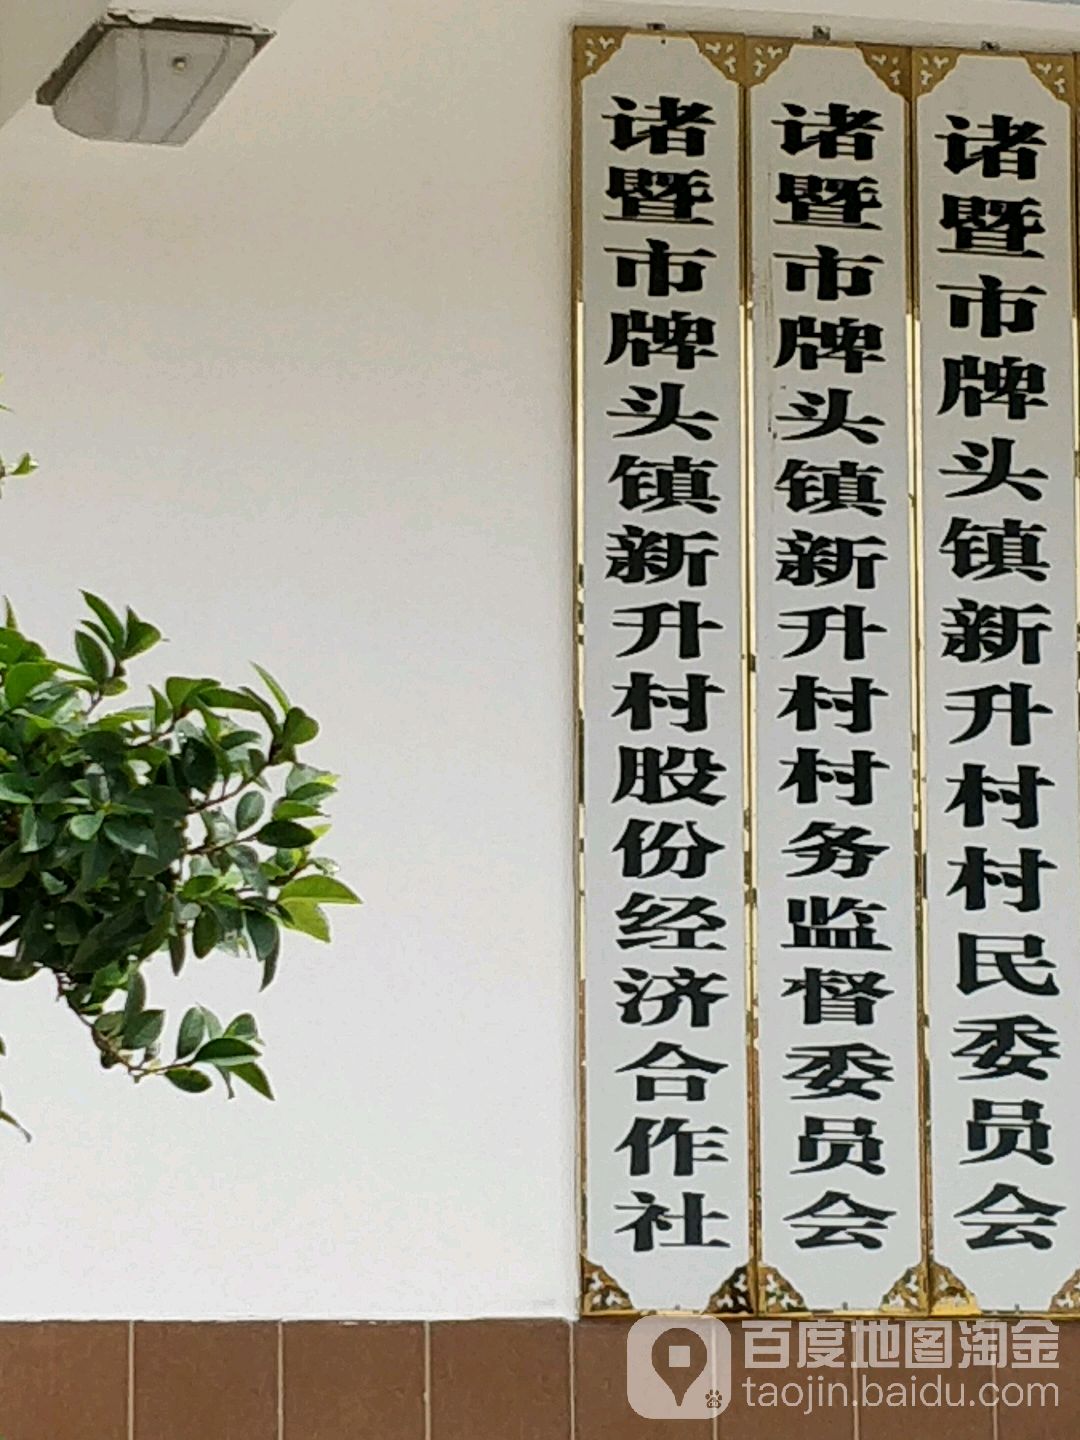 诸暨市牌头镇新升村股份经济合作社
诸暨市牌头镇新升村村务监督委员会
诸暨市牌头镇新升村村民委员会
百度地图淘金
taojin.baidu.com